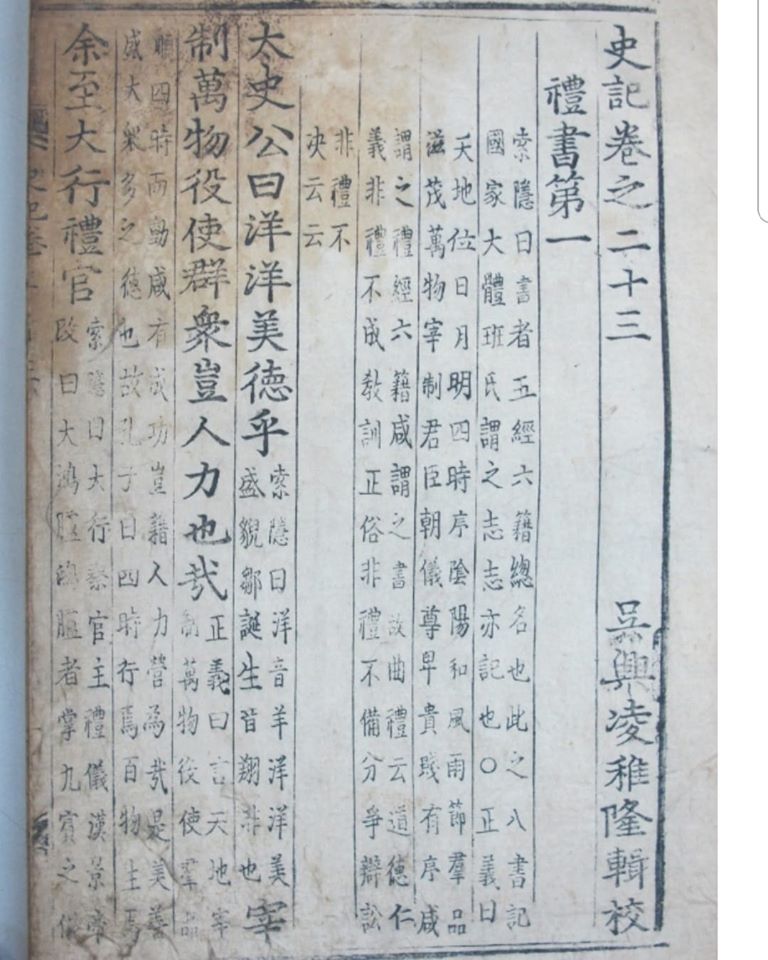 史記卷之二十三
吳興凌稚隆輯校
禮書第一
索隱曰書者五經六籍總名也此之八書記
國家大體班氏謂之志志亦記也○正義曰
天地位日月明四時序陰陽和風雨節羣品
滋茂萬物宰制君臣朝儀尊卑貴賤有序咸
謂之禮經六籍咸謂之書故曲禮云道德仁
義非禮不成教訓正俗非禮不備分爭辯訟
非禮不
決云云
太史公曰洋洋美德乎
索隱曰洋音羊洋洋美
盛貌鄒誕生音翔非也
宰
制萬物役使群衆豈人力也哉
正義曰言天地宰
制萬物役使羣品
順四時而動咸有成功豈藉人力營為哉是美善
盛大衆多之德也故孔子曰四時行焉百物生焉
余至大行禮官
索隱曰大行秦官主禮儀漢景帝
改曰大鴻臚鴻臚者掌九賓之儀